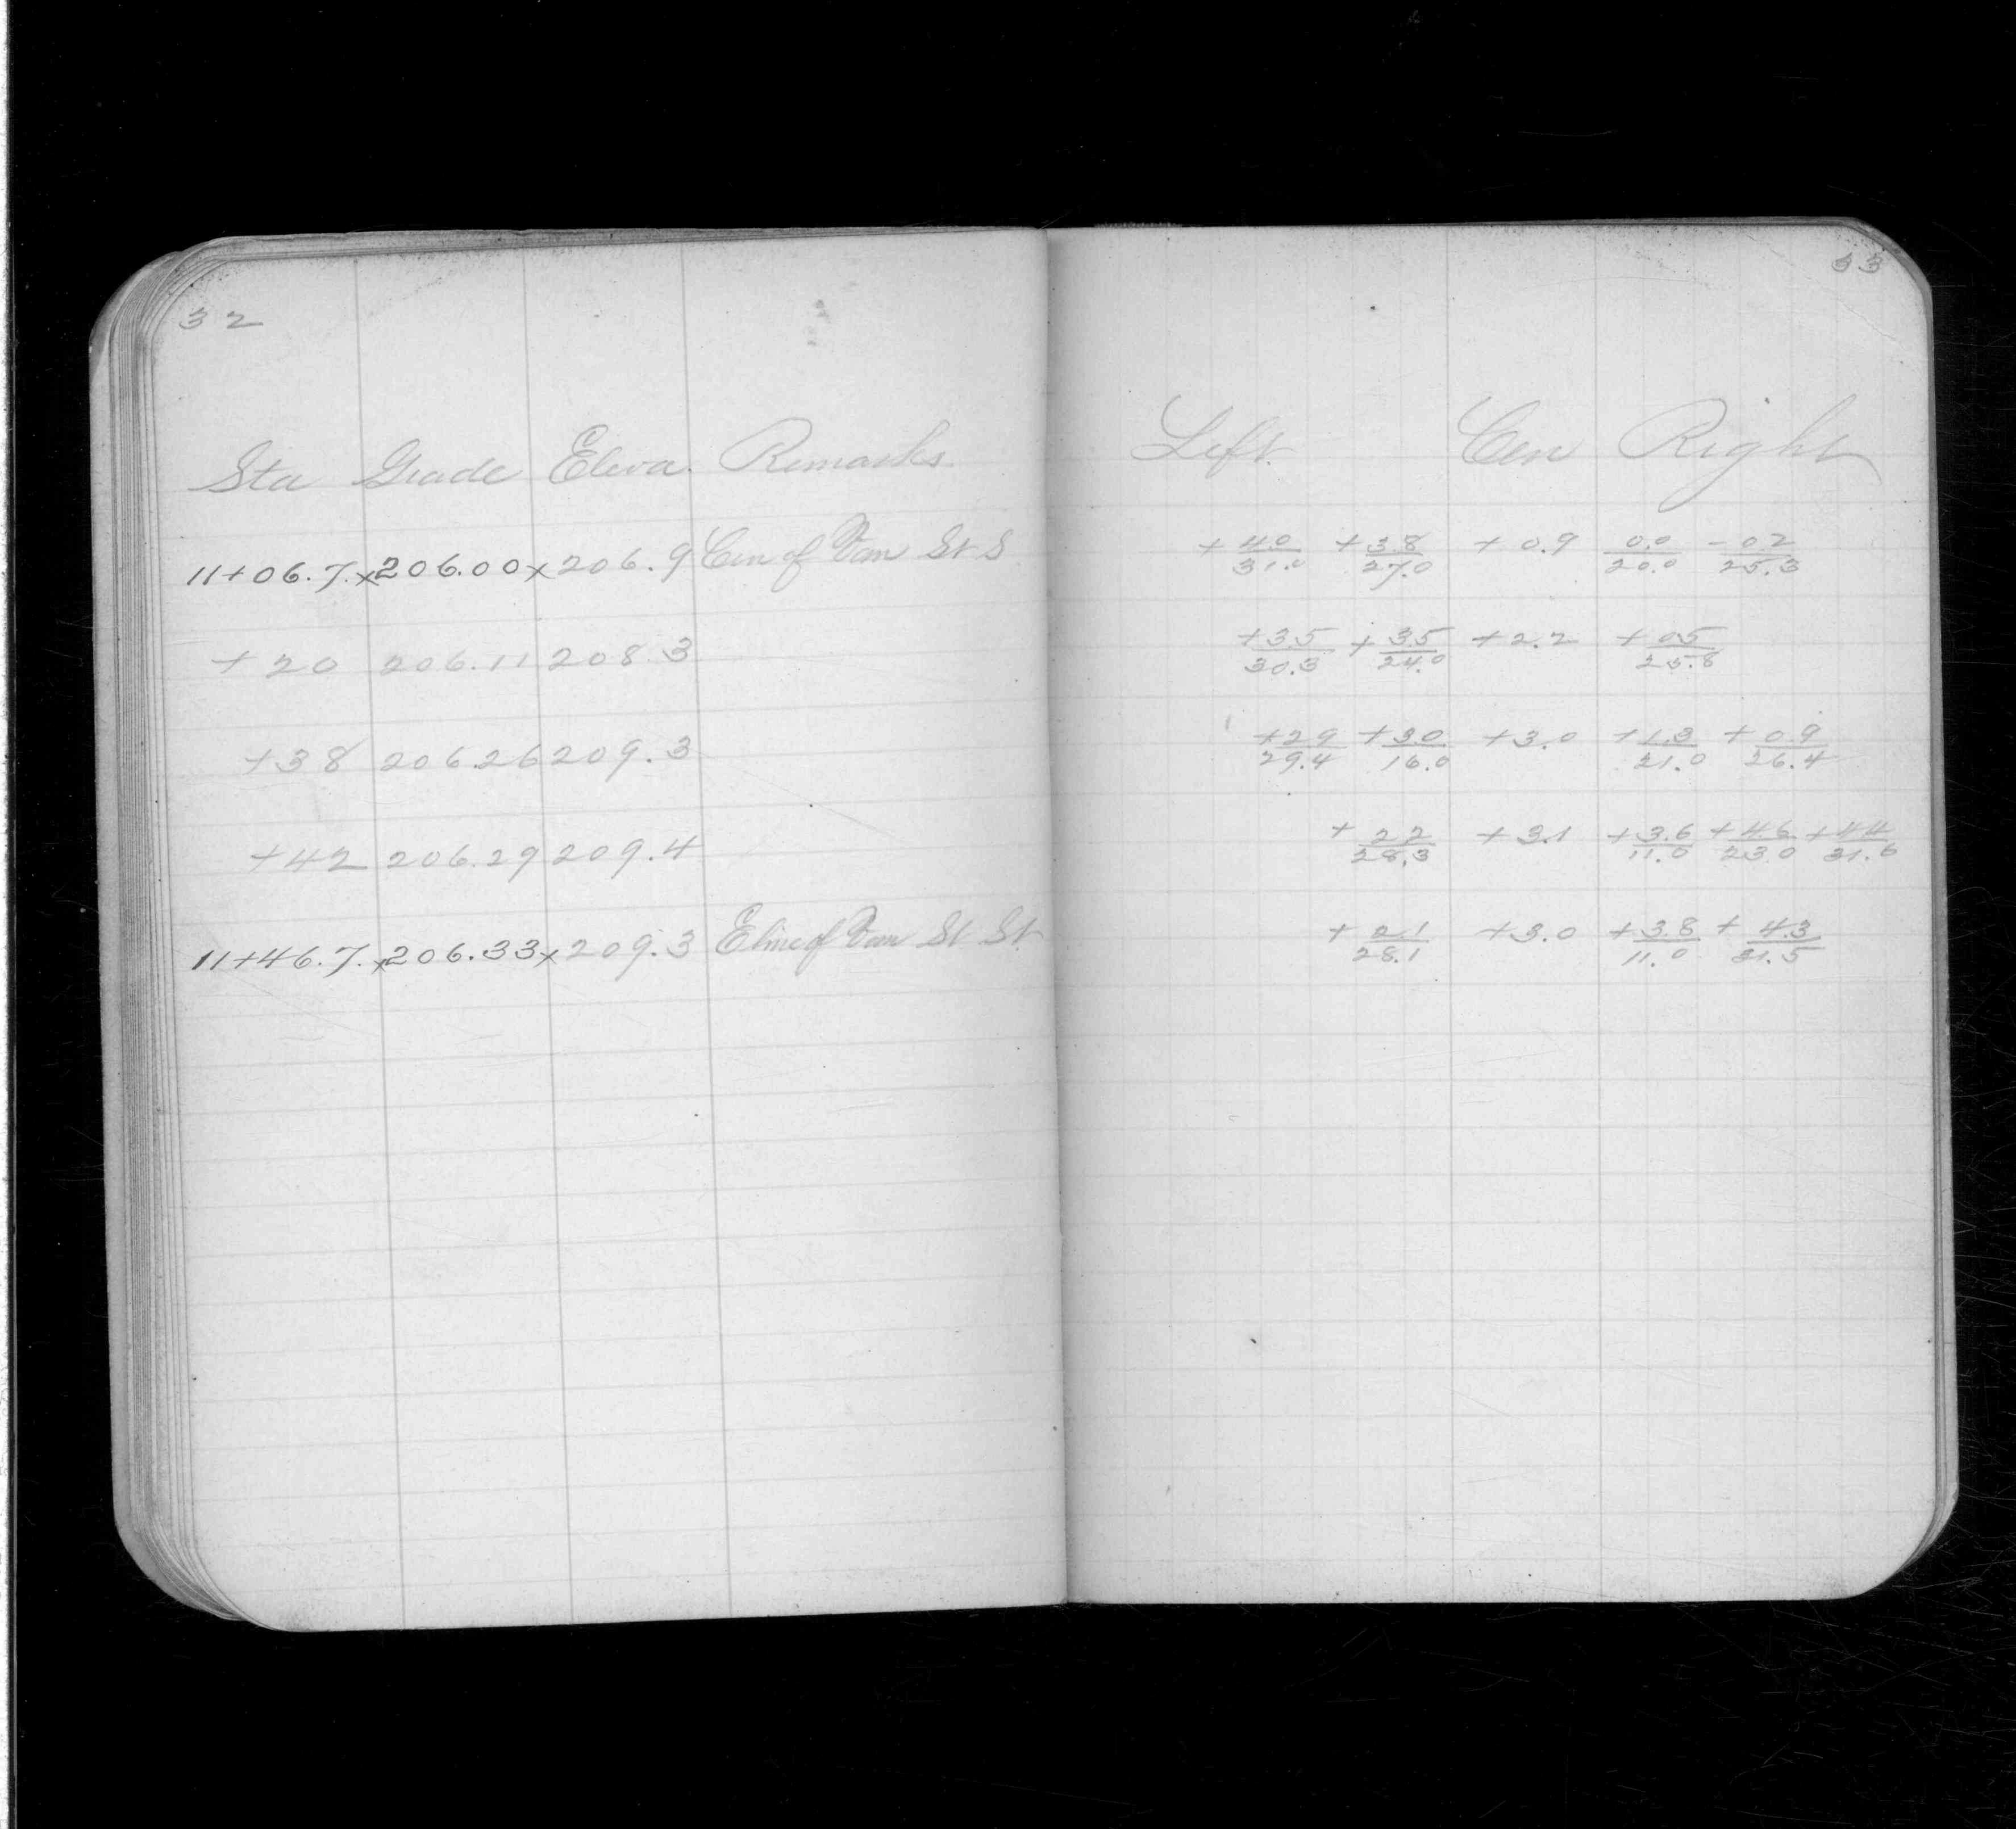 32
Sta Grade Eleva. Remarks
11+06.7. x 206.00 x 206.9 Cen of Van St S
+20 206.11 208.3
+38 206.26 209.3
+42 206.29 209.4
11+46.7. x 206.33 x 209.3 E line of Van St St
33
Left. Cen Right
+4.0/31.0 +3.8/27.0 +0.9 0.0/20.0 -0.2/25.3
+3.5/30.3 +3.5/24.0 +2.2 +0.5/25.8
+2.9/29.4 +3.0/16.0 +3.0 +1.3/21.0 +0.9/26.4
+2.2/28.3 +3.1 +3.6/11.0 +4.6/23.0 +4.4/31.6
+2.1/28.1 +3.0 +3.8/11.0 +4.3/31.5